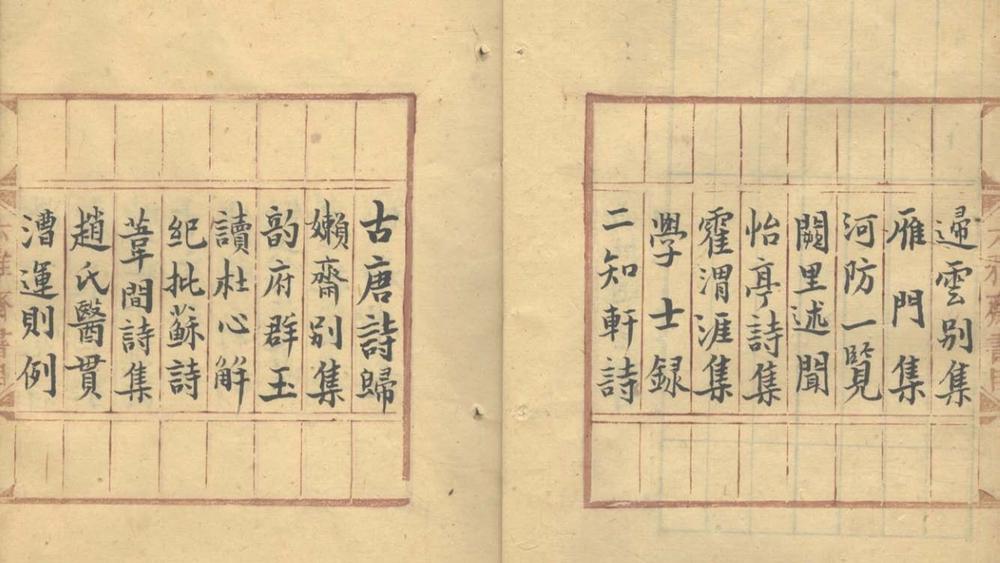 歸雲别集
雁門集
河防一覧
闕里述聞
怡亭詩集
霍渭涯集
學士録
二知軒詩
古唐詩歸
嬾齋别集
韵府群玉
讀杜心解
紀批蘇詩
葦間詩集
趙氏醫貫
漕運則例